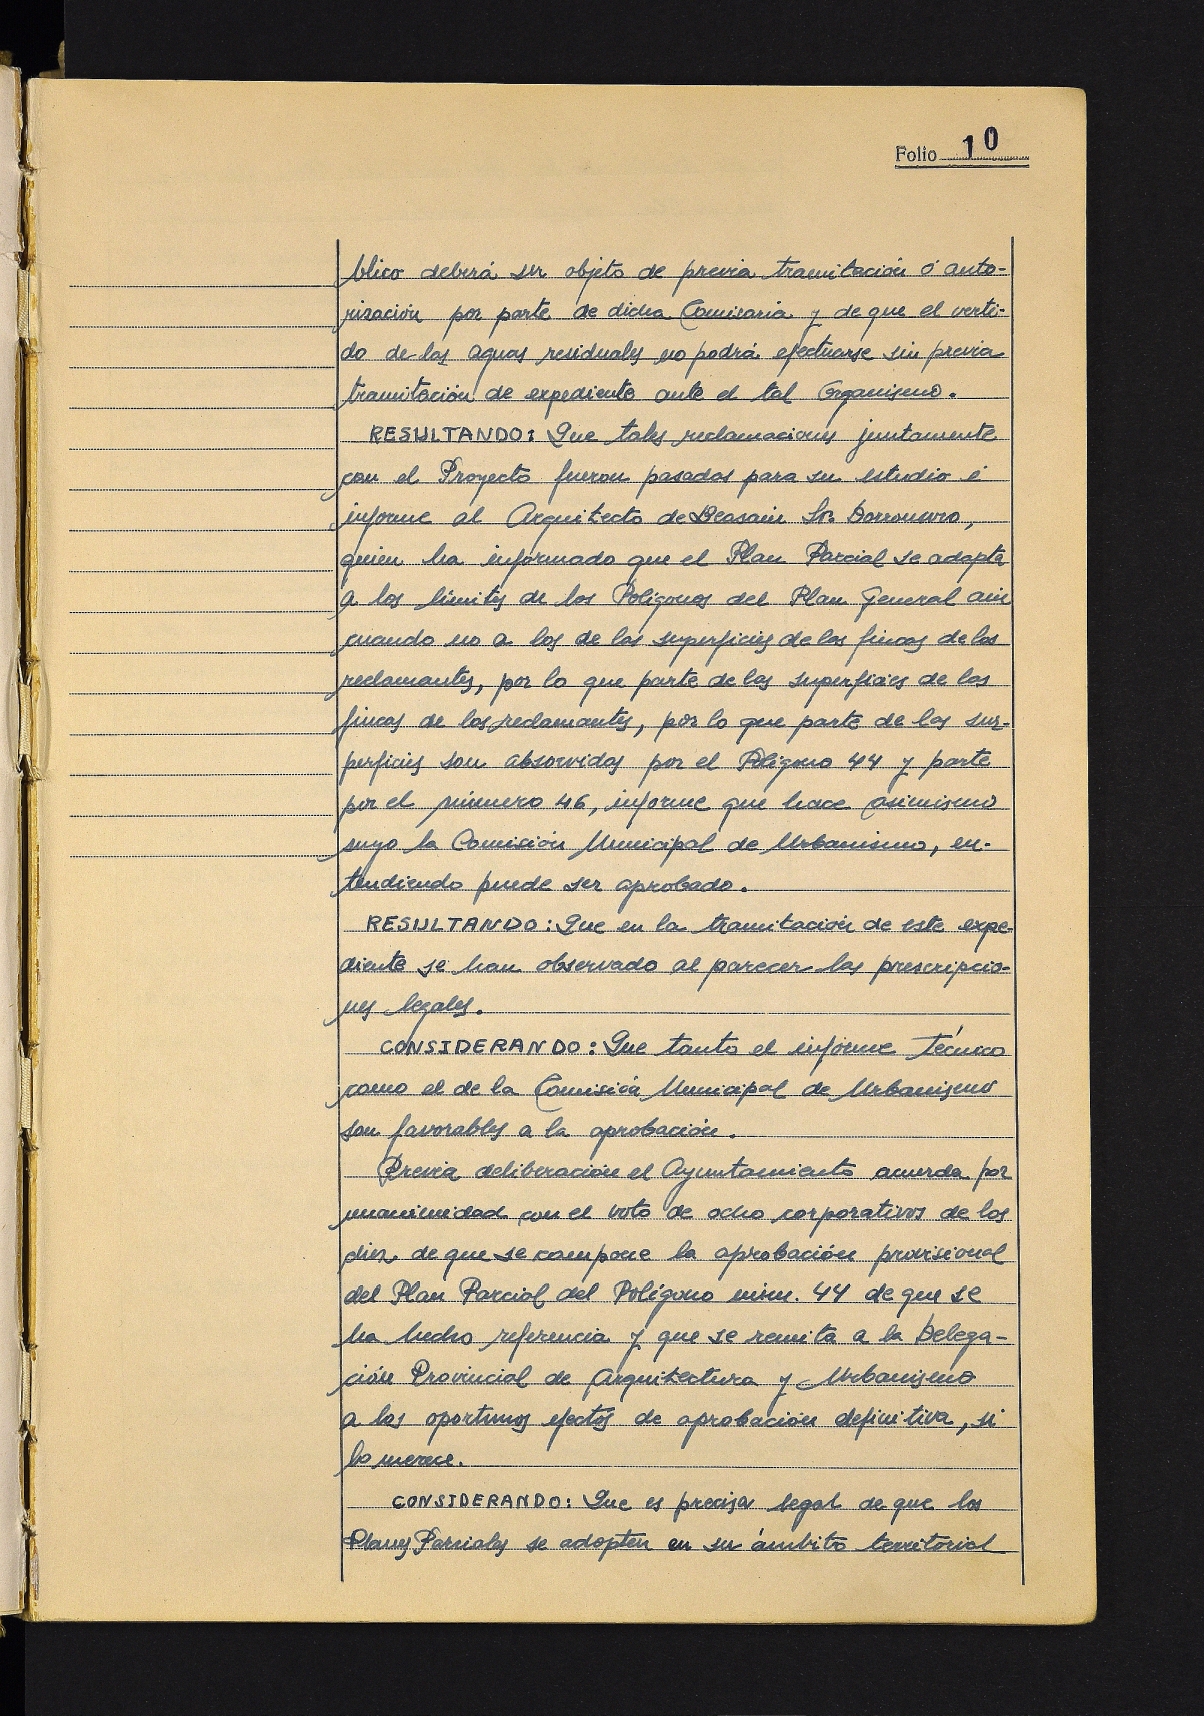 Folio 10
blico deberá ser objeto de previa tramitación ó auto-
rización por parte de dicha Comisaria y de que el verti-
do de las aguas residuales no podrá efectuarse sin previa
tramitación de expediente ante el tal Organismo.
RESULTANDO: Que tales reclamaciones juntamente
con el Proyecto fueron pasados para su estudio é
informe al Arquitecto de Beasain Sr. Dorronsoro,
quien ha informado que el Plan Parcial se adapta
a los límites de los Polígonos del Plan General aun
cuando no a los de las superficies de las fincas de los
reclamantes, por lo que parte de las superficies de las
fincas de los reclamantes, por lo que parte de las sur-
perficies son absorvidas por el Polígono 44 y parte
por el número 46, informe que hace asimismo
suyo la Comisión Municipal de Urbanismo, en-
tendiendo puede ser aprobado.
RESULTANDO: Que en la tramitación de este expe-
diente se han observado al parecer las prescripcio-
nes legales.
CONSIDERANDO: Que tanto el informe Técnico
como el de la Comisión Municipal de Urbanismo
son favorables a la aprobación.
Previa deliberación el Ayuntamiento acuerda por
unanimidad con el voto de ocho corporativos de los
diez de que se compone la aprobación provisional
del Plan Parcial del Polígono núm. 44 de que se
ha hecho referencia y que se remita a la Delega-
ción Provincial de Arquitectura y Urbanismo
a los oportunos efectos de aprobación definitiva, si
lo merece.
CONSIDERANDO: Que es precisa legal de que los
Planes Parciales se adopten en su ámbito territorial